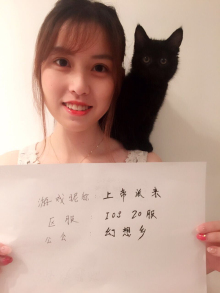 游戏昵称: 上帝派来
区服 IOS 20服
公会: 幻想乡